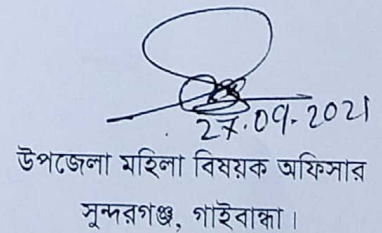 27.09.2021
উপজেলা মহিলা বিষয়ক অফিসার
সুন্দরগঞ্জ, গাইবান্ধা।